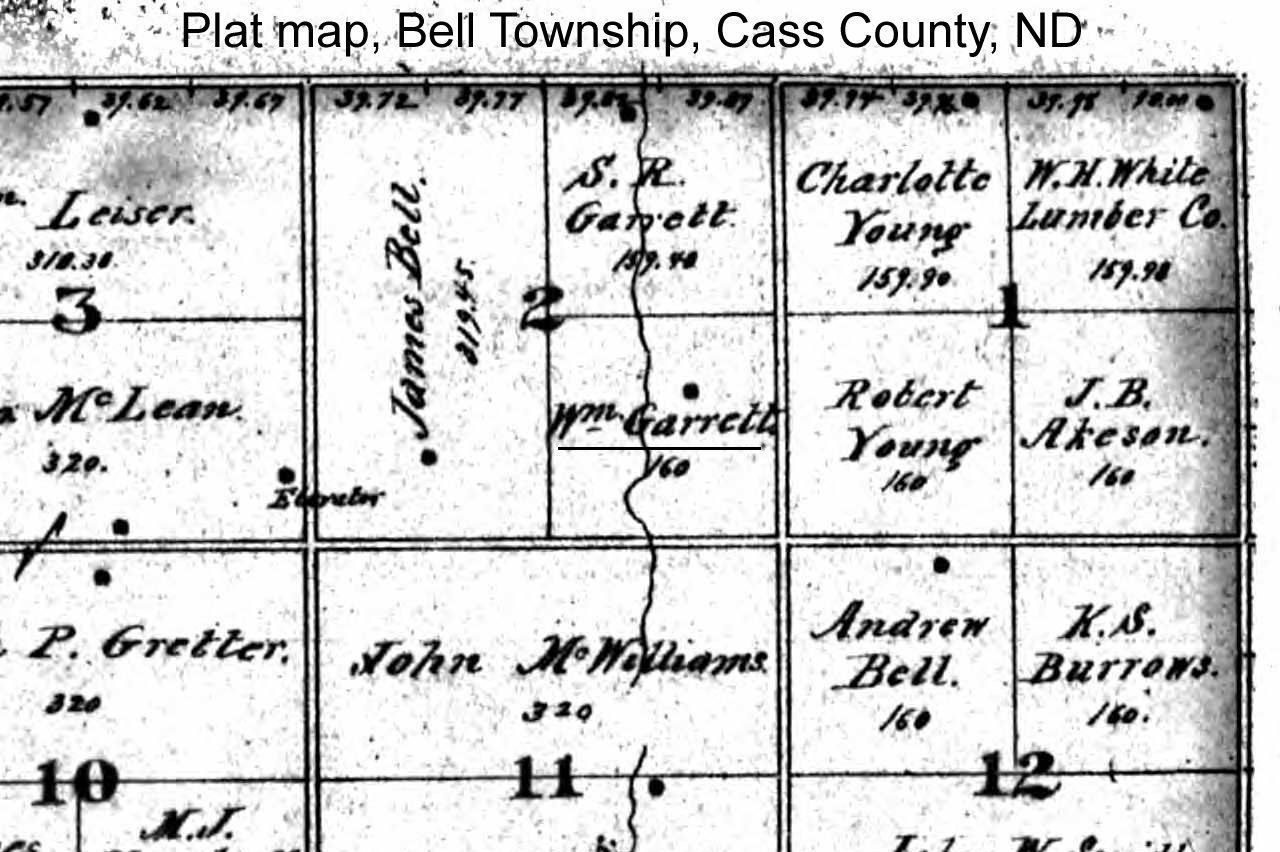 Plat map, Bell Township, Cass County, ND
39.62 39.67 39.72 39.77 39.87 39.94 39.98
Leiser.
310.30
3
McLean.
320.
Elevator
James Bell.
319.45.
2
S. R.
Garrett.
159.40
Wm. Garrett
160
Charlotte
Young
159.90
W.H. White
Lumber Co.
159.98
1
Robert
Young
160
J.B.
Akeson.
160
P. Gretter.
320
10
John McWilliams.
320
11
Andrew
Bell.
160
K.S.
Burrows.
160.
12